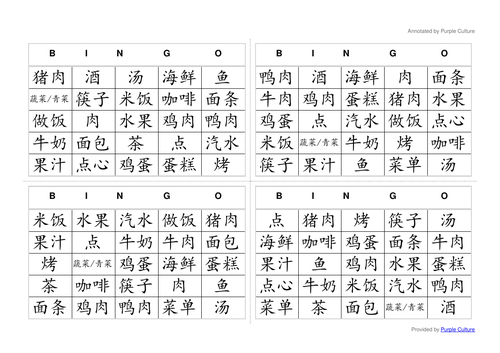 Annotated by Purple Culture
B I N G O
猪肉 酒 汤 海鲜 鱼
蔬菜/青菜 筷子 米饭 咖啡 面条
做饭 肉 水果 鸡肉 鸭肉
牛奶 面包 茶 点 汽水
果汁 点心 鸡蛋 蛋糕 烤
B I N G O
鸭肉 酒 海鲜 肉 面条
牛肉 鸡肉 蛋糕 猪肉 水果
鸡蛋 点 汽水 做饭 点心
米饭 蔬菜/青菜 牛奶 烤 咖啡
筷子 果汁 鱼 菜单 汤
B I N G O
米饭 水果 汽水 做饭 猪肉
果汁 点 牛奶 牛肉 面包
烤 蔬菜/青菜 鸡蛋 海鲜 蛋糕
茶 咖啡 筷子 肉 鱼
面条 鸡肉 鸭肉 菜单 汤
B I N G O
点 猪肉 烤 筷子 汤
海鲜 咖啡 鸡蛋 面条 牛肉
果汁 鱼 蛋糕 鸡肉 水果
点心 牛奶 米饭 汽水 鸭肉
菜单 茶 面包 蔬菜/青菜 酒
Provided by Purple Culture